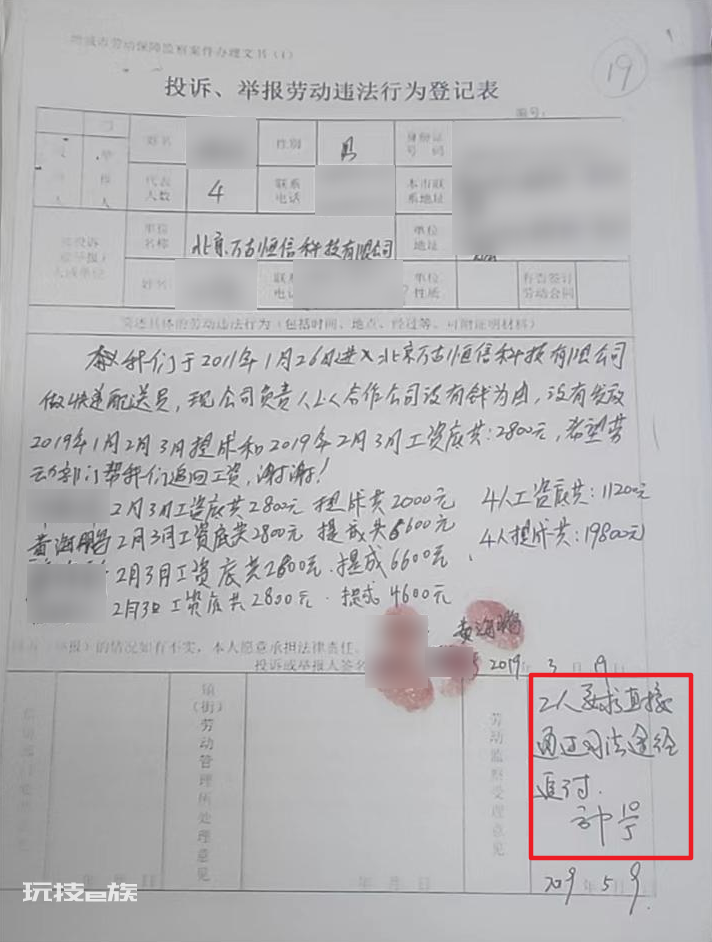 增城市劳动保障监察案件办理文书(1)
19
投诉、举报劳动违法行为登记表
编号:
姓名 性别 男 身份证号码
代表人数 4 联系电话 本市联系地址
单位名称 北京万古恒信科技有限公司 单位地址
姓名 联系电话 单位性质 有否签订劳动合同
简述具体的劳动违法行为(包括时间、地点、经过等,可附证明材料)
我们于2011年1月26日进入北京万古恒信科技有限公司
做快递配送员,现公司负责人以合作公司没有钱为由,没有发放
2019年1月2月3月提成和2019年2月3月工资底共:2800元,希望劳
动部门帮我们追回工资,谢谢!
2月3月工资底共2800元 提成共2000元 4人工资底共:11200元
黄海鹏2月3月工资底共2800元 提成共6600元 4人提成共:19800元
2月3月工资底共2800元.提成6600元
2月3日工资底共2800元.提成4600元
黄海鹏
(举报)的情况如有不实,本人愿意承担法律责任。
投诉或举报人签名 2019年3月19日
镇(街)劳动管理所处理意见
劳动监察受理意见
2人要求直接
通过司法途径
追讨.
年 月 日
2019年5月9
玩技e族